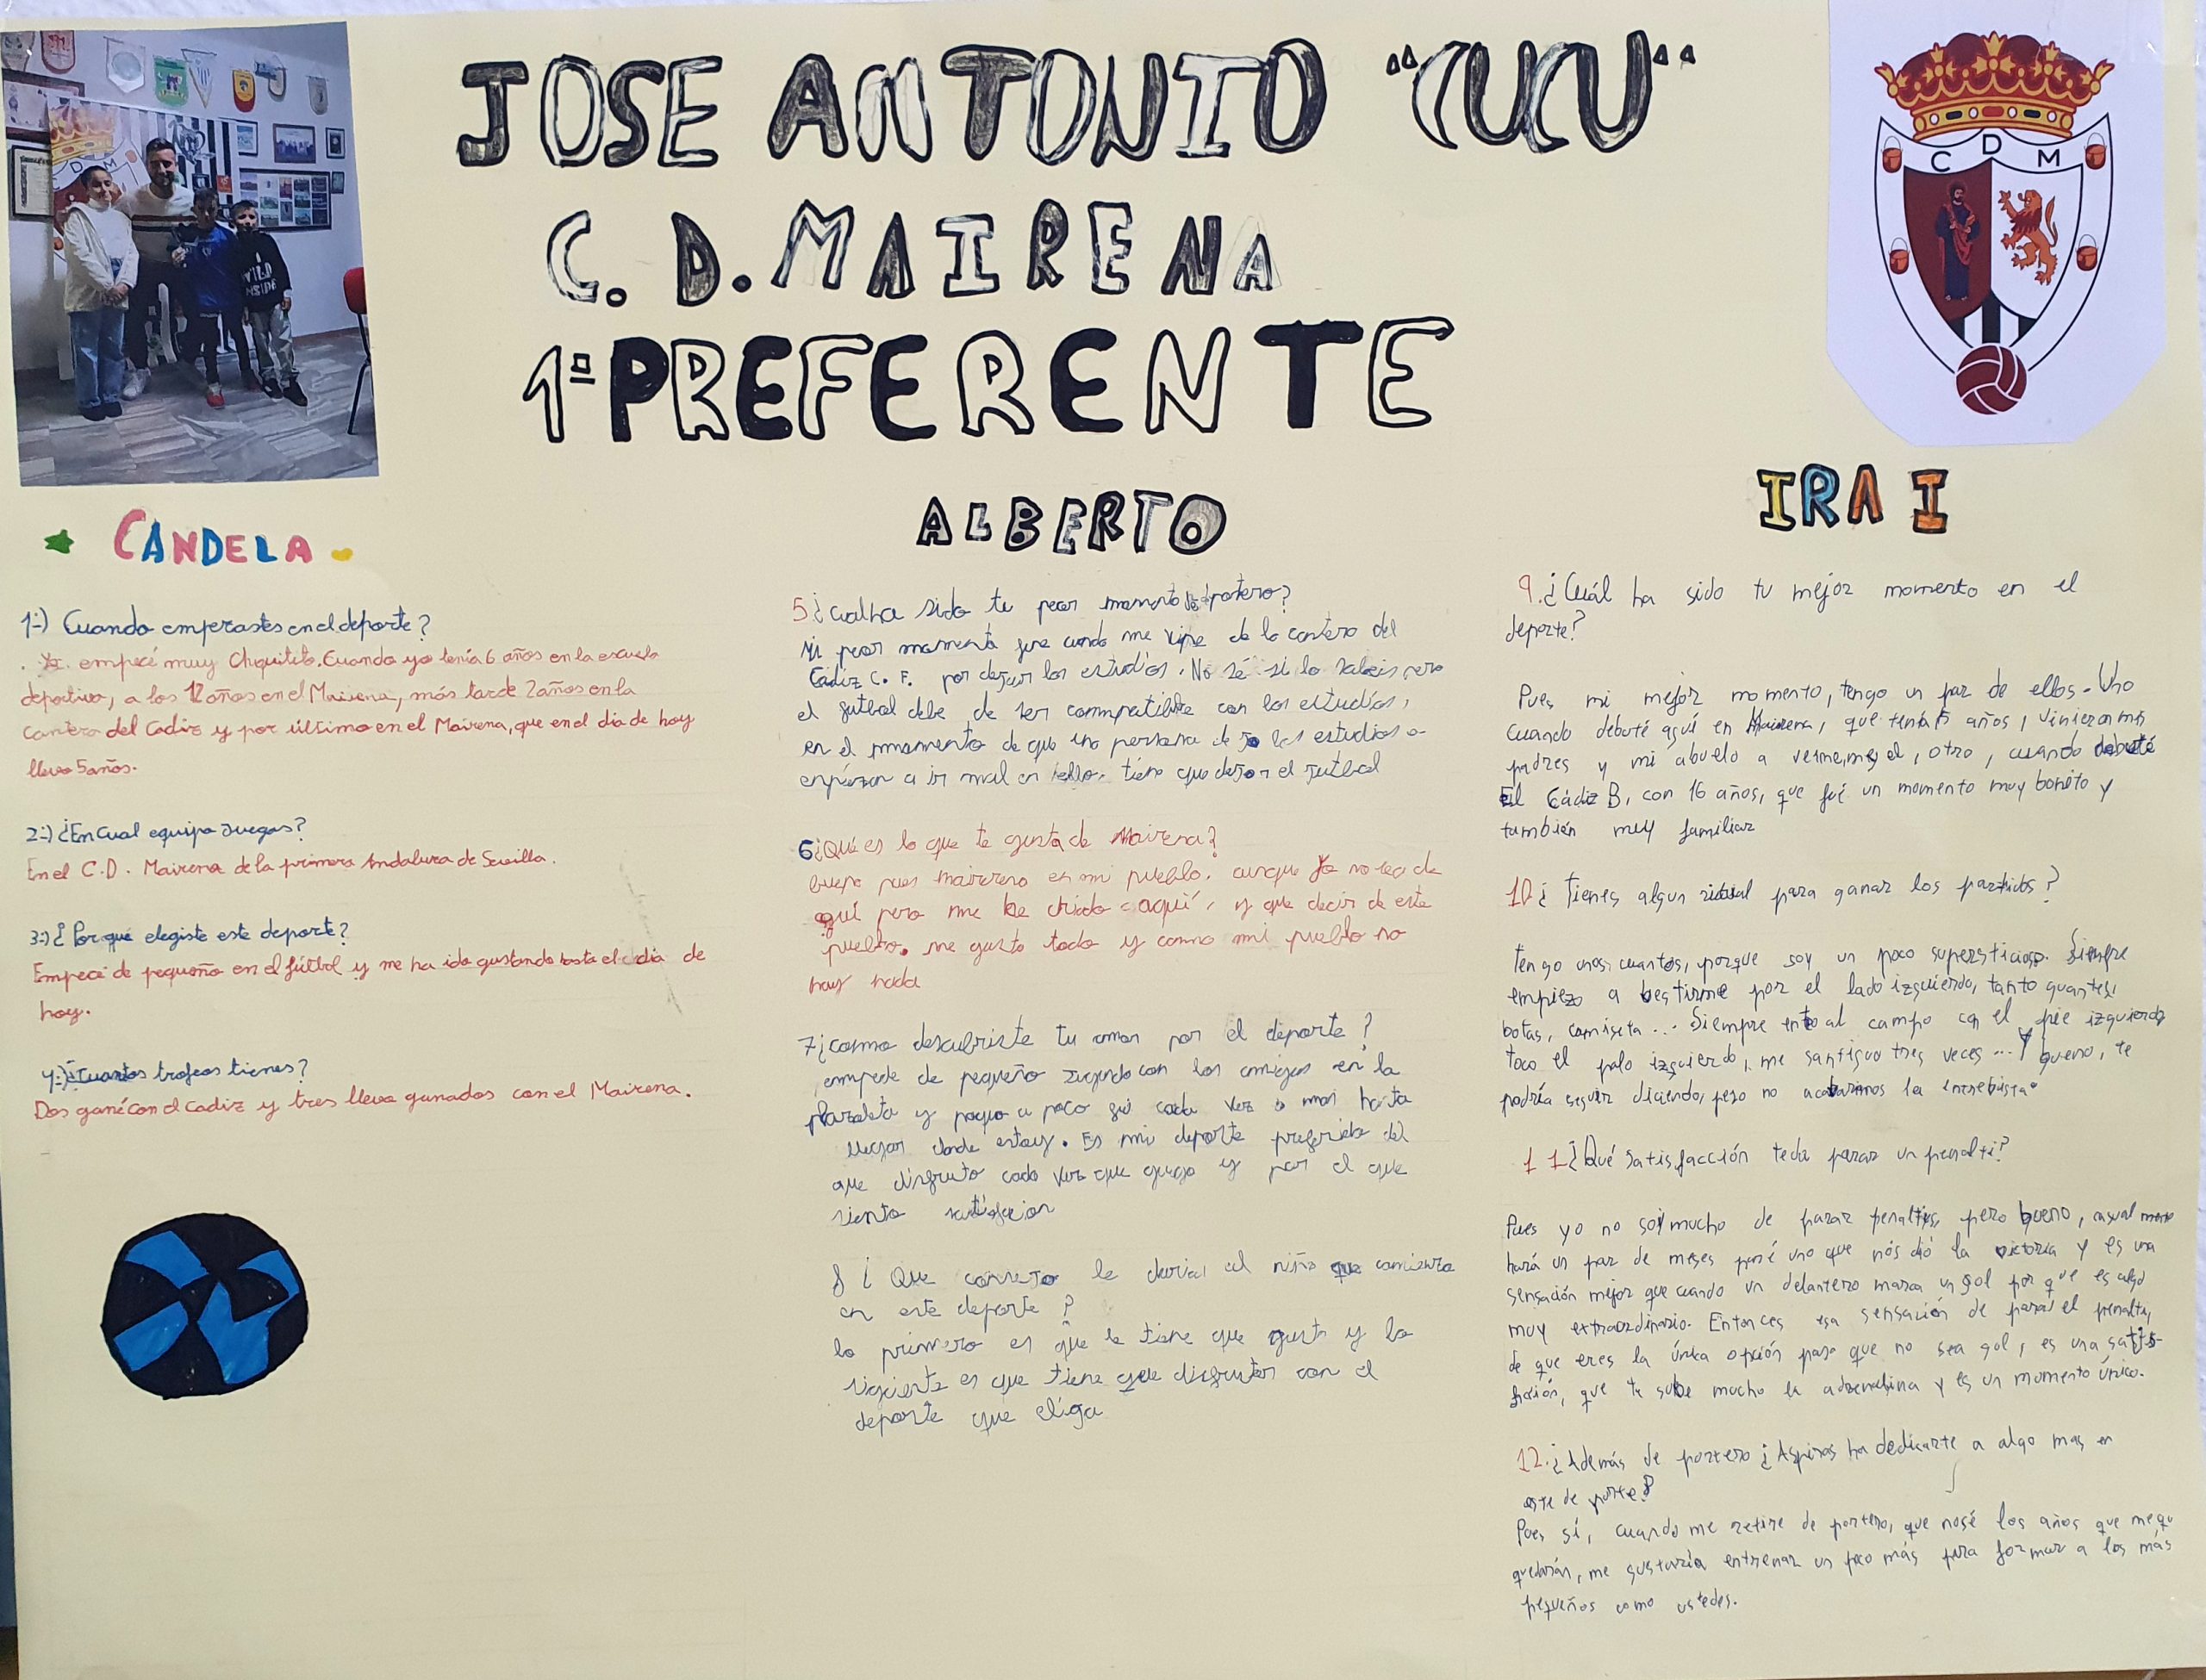 JOSE ANTONIO "CUCU"
C. D. MAIRENA
1ª PREFERENTE
C D M
WILD
INSIDE
CANDELA
1:) Cuando emperastes en el deporte?
empecé muy chiquitito. Cuando yo tenía 6 años en la escuela
deportiva, a los 12 años en el Mairena, más tarde 2 años en la
cantera del Cadiz y por último en el Mairena, que en el dia de hoy
llevo 5 años.
2:) ¿En Cual equipo Juegas?
En el C.D. Mairena de la primera Andaluza de Sevilla.
3:) ¿Por que elegiste este deporte?
Empecé de pequeño en el fútbol y me ha ido gustando hasta el dia de
hoy.
4:) ¿Cuantos trofeos tienes?
Dos gané con el Cadiz y tres llevo ganados con el Mairena.
ALBERTO
5 ¿cual ha sido tu peor momento de portero?
Mi peor momento fue cuando me vine de la cantera del
Cádiz C. F. por dejar los estudios. No sé si lo sabeis pero
el futbol debe de ser compatible con los estudios,
en el momento de que una persona deja los estudios o
empiezan a ir mal en ello, tiene que dejar el futbol
6 ¿Qué es lo que te gusta de Mairena?
bueno pues mairena es mi pueblo, aunque yo no sea de
aquí pero me he criado aquí, y que decir de este
pueblo. me gusta todo y como mi pueblo no
hay nada
7 ¿como descubriste tu amor por el deporte?
empede de pequeño jugando con los amigos en la
plazoleta y poquo a poco fui cada vez a mas hasta
llegar donde estoy. Es mi deporte preferido del
que disfruto cada vez que juego y por el que
siento satisfacion
8 ¿Que consejo le darias al niño que comienza
en este deporte?
lo primero es que le tiene que gustar y lo
siguiente es que tiene que disfrutar con el
deporte que eliga
IRAI
9. ¿Cuál ha sido tu mejor momento en el
deporte?
Pues mi mejor momento, tengo un par de ellos. Uno
cuando debuté aquí en Mairena, que tenía 15 años, vinieron mis
padres y mi abuelo a verme, y el otro, cuando debuté
El Cádiz B, con 16 años, que fué un momento muy bonito y
también muy familiar
10 ¿Tienes algun ritual para ganar los partidos?
tengo unos cuantos, porque soy un poco supersticioso. Siempre
empiezo a bestirme por el lado izquierdo, tanto guantes,
botas, camiseta... Siempre entro al campo con el pie izquierdo
toco el palo izquierdo, me santiguo tres veces... Y bueno, te
podría seguir diciendo, pero no acabariamos la entrebista.
11 ¿Qué satisfacción te da parar un penalti?
Pues yo no soy mucho de parar penaltis, pero bueno, casualmente
hará un par de meses paré uno que nós dió la victoria y es una
sensación mejor que cuando un delantero marca un gol por que es algo
muy extraordinario. Entonces esa sensación de parar el penalti,
de que eres la única opción para que no sea gol, es una satis-
fación, que te sube mucho la adrenalina y es un momento único.
12. ¿Además de portero ¿Aspiras ha dedicarte a algo mas en
este deporte?
Pues sí, cuando me retire de portero, que nosé los años que me qu
quedarán, me gustaría entrenar un poco más para formar a los más
pequeños como ustedes.